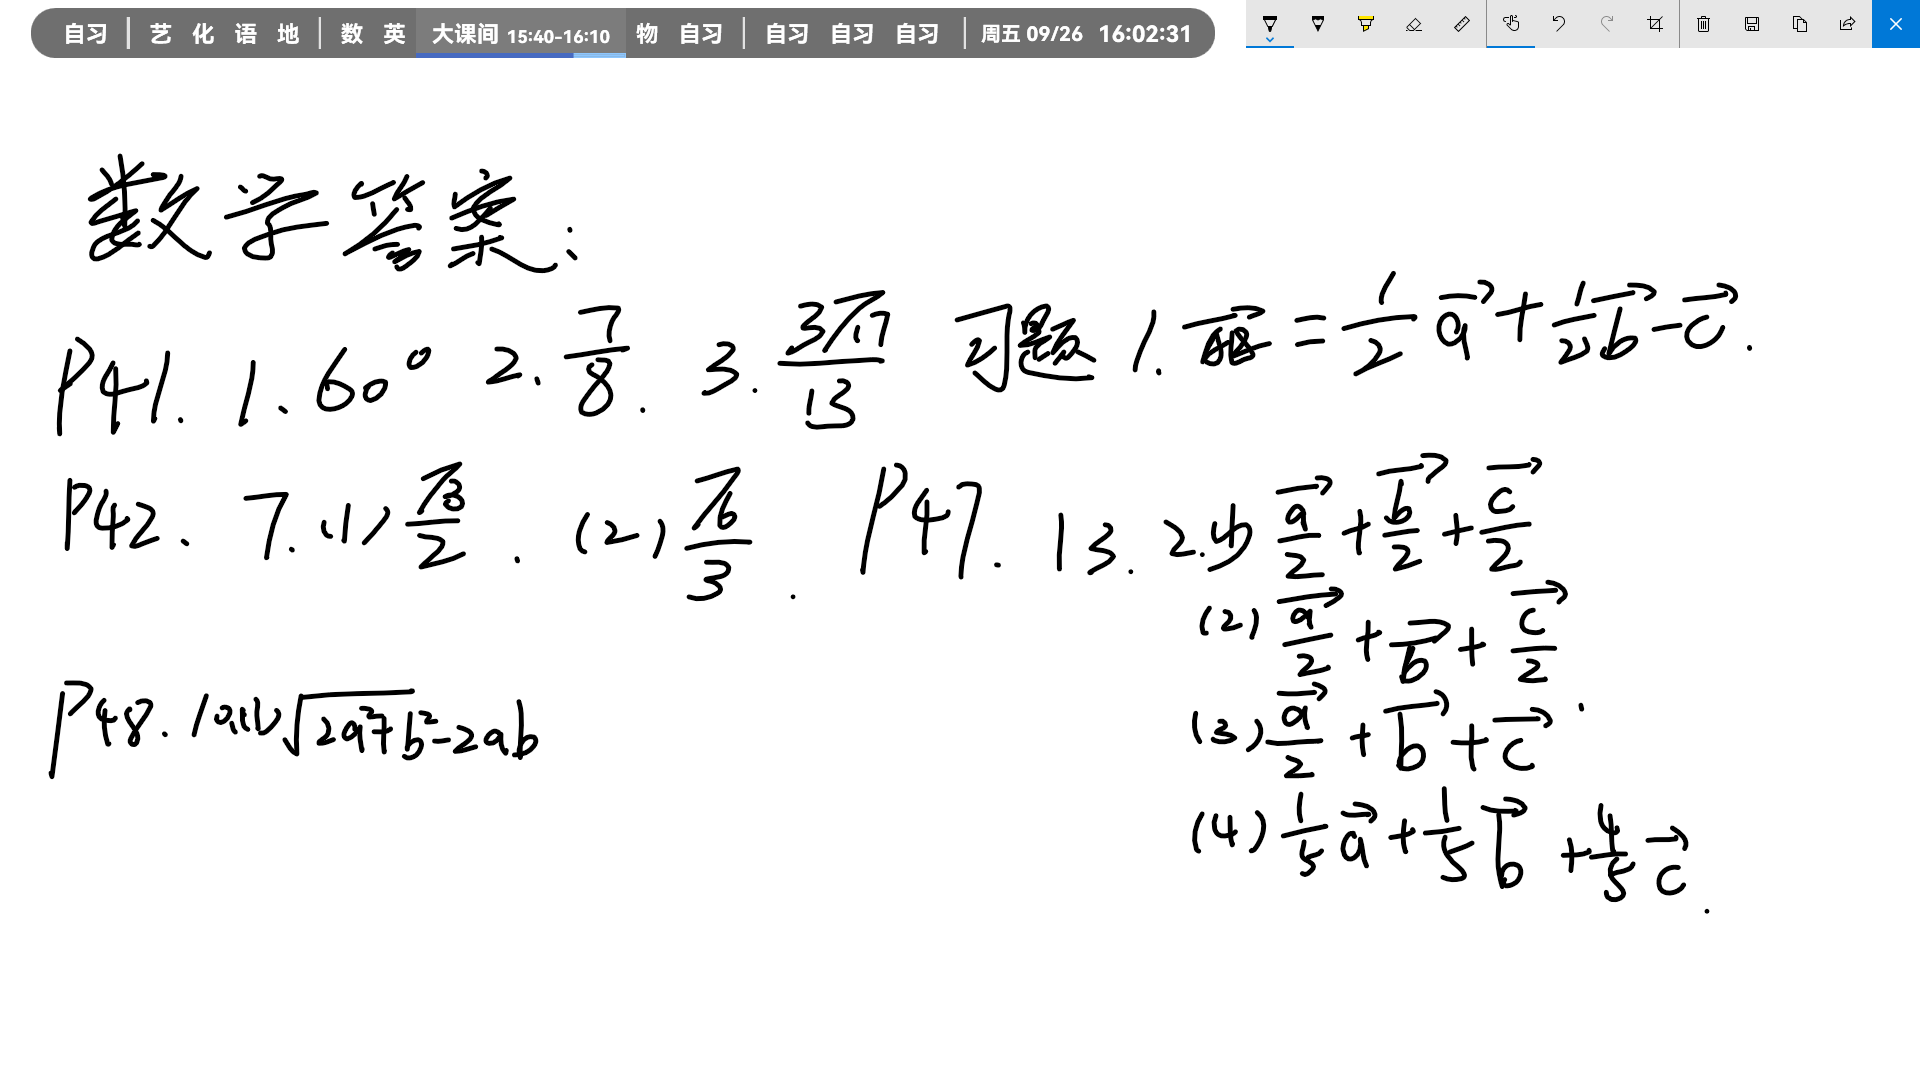 自习 | 艺 化 语 地 | 数 英 大课间 15:40-16:10 物 自习 | 自习 自习 自习 | 周五 09/26 16:02:31
数学答案:
P41. 1、60° 2、7/8. 3. 3√17/13 习题 1. = 1/2 a→ + 1/2 b→ - c→.
P42、 7. (1) √3/2. (2) √6/3. P47. 13. 2.(1) a→/2 + b→/2 + c→/2
(2) a→/2 + b→ + c→/2
(3) a→/2 + b→ + c→.
(4) 1/5 a→ + 1/5 b→ + 4/5 c→.
P48. 10.(1) √2a²+b²-2ab